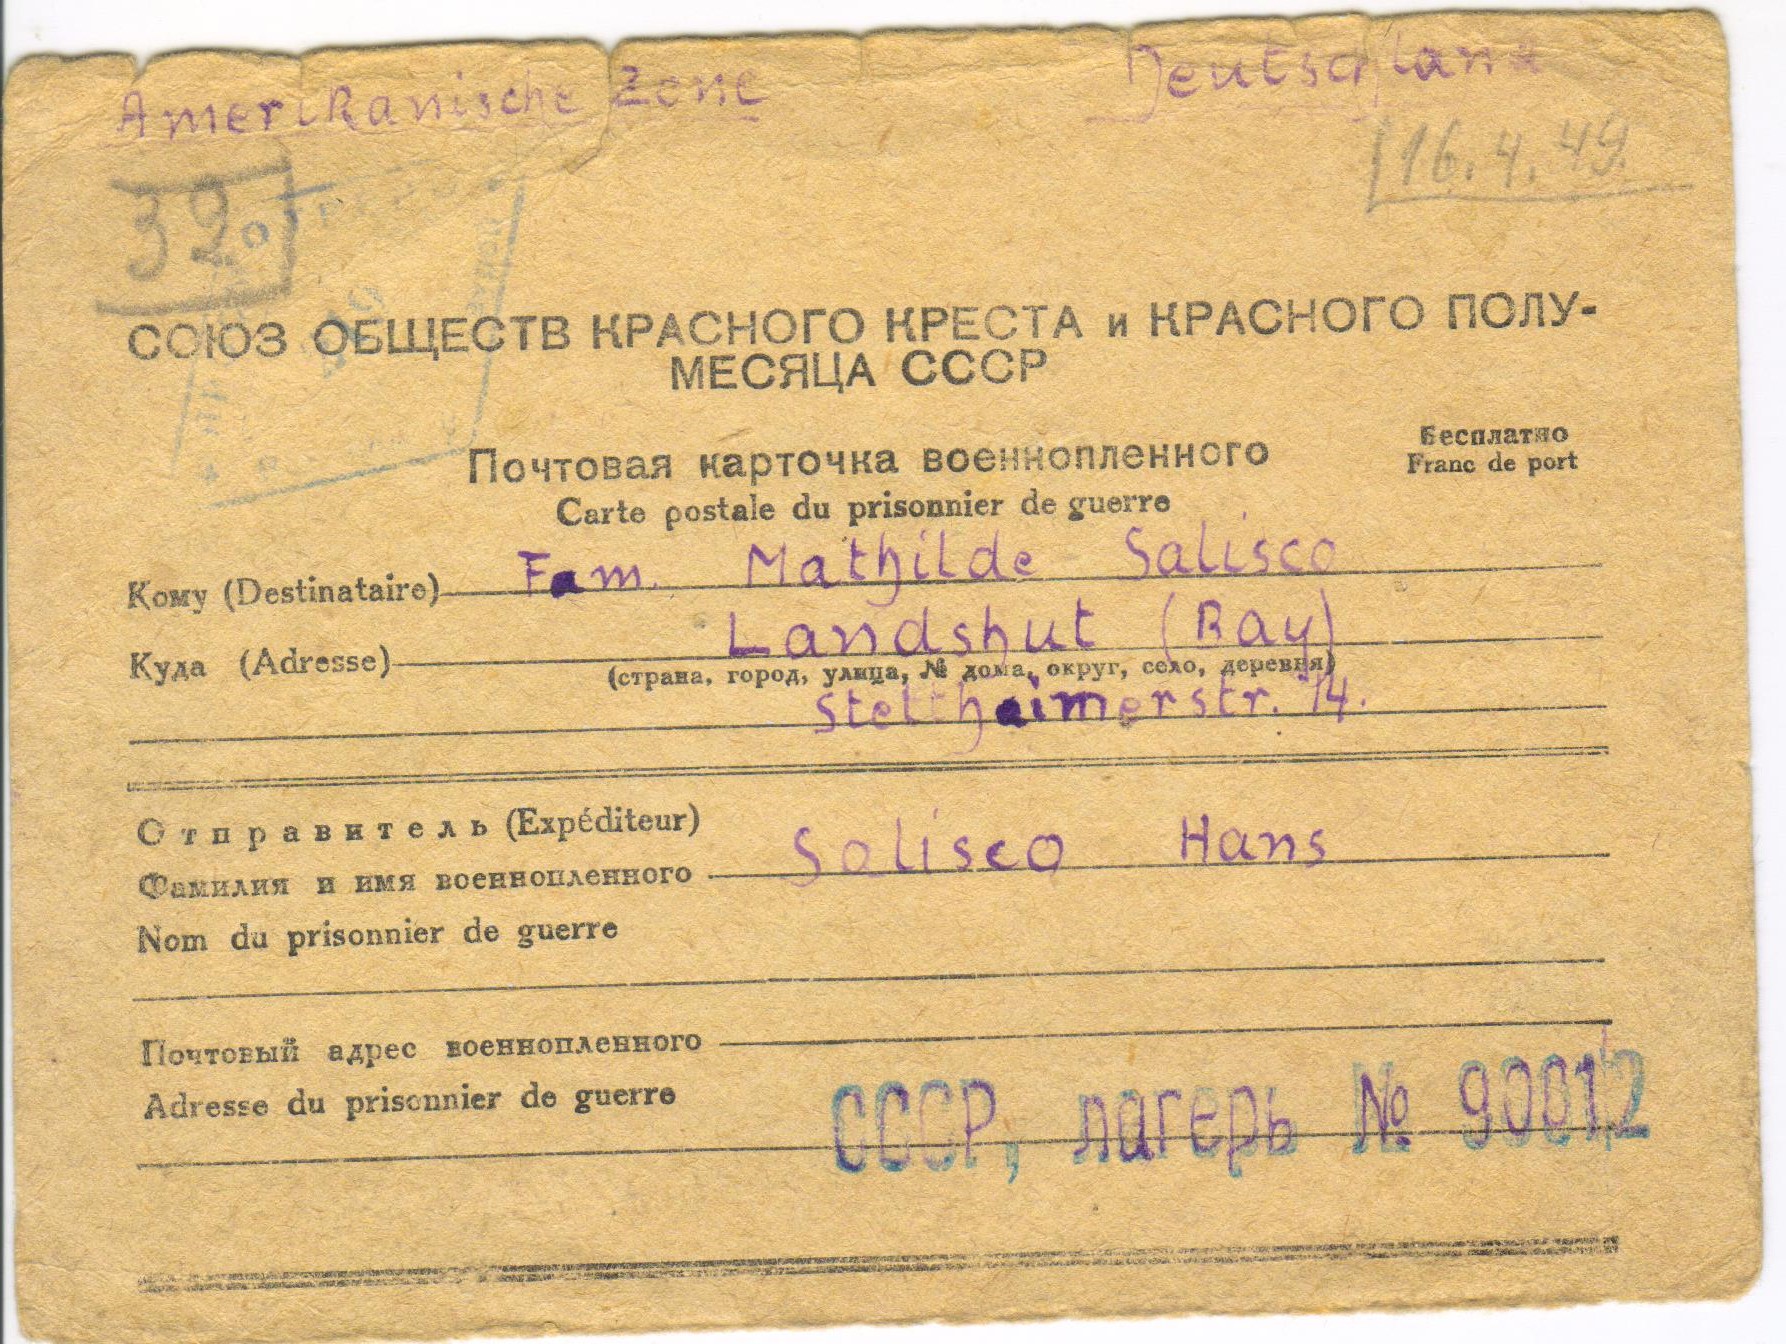 Amerikanische Zone Deutschland
16.4.49.
32
СОЮЗ ОБЩЕСТВ КРАСНОГО КРЕСТА и КРАСНОГО ПОЛУ-
МЕСЯЦА СССР
Бесплатно
Почтовая карточка военнопленного
Franc de port
Carte postale du prisonnier de guerre
Кому (Destinataire) Fam. Mathilde Salisco
Куда (Adresse) Landshut (Bay)
(страна, город, улица, № дома, округ, село, деревня)
Stettheimerstr. 14.
Отправитель (Expéditeur)
Salisco Hans
Фамилия и имя военнопленного
Nom du prisonnier de guerre
Почтовый адрес военнопленного
Adresse du prisonnier de guerre
СССР, лагерь № 90012